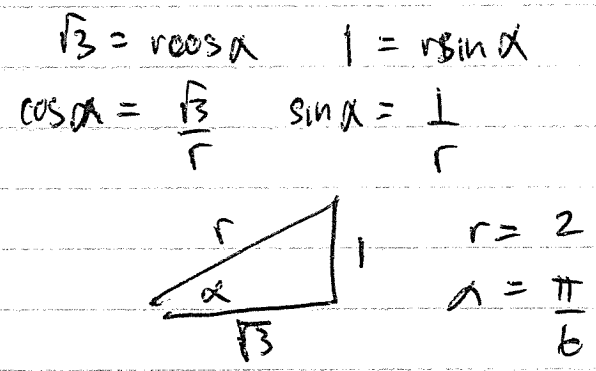 √3 = rcosα    1 = rsinα
cosα = √3/r    sinα = 1/r
r    1    r = 2
α    α = π/6
√3